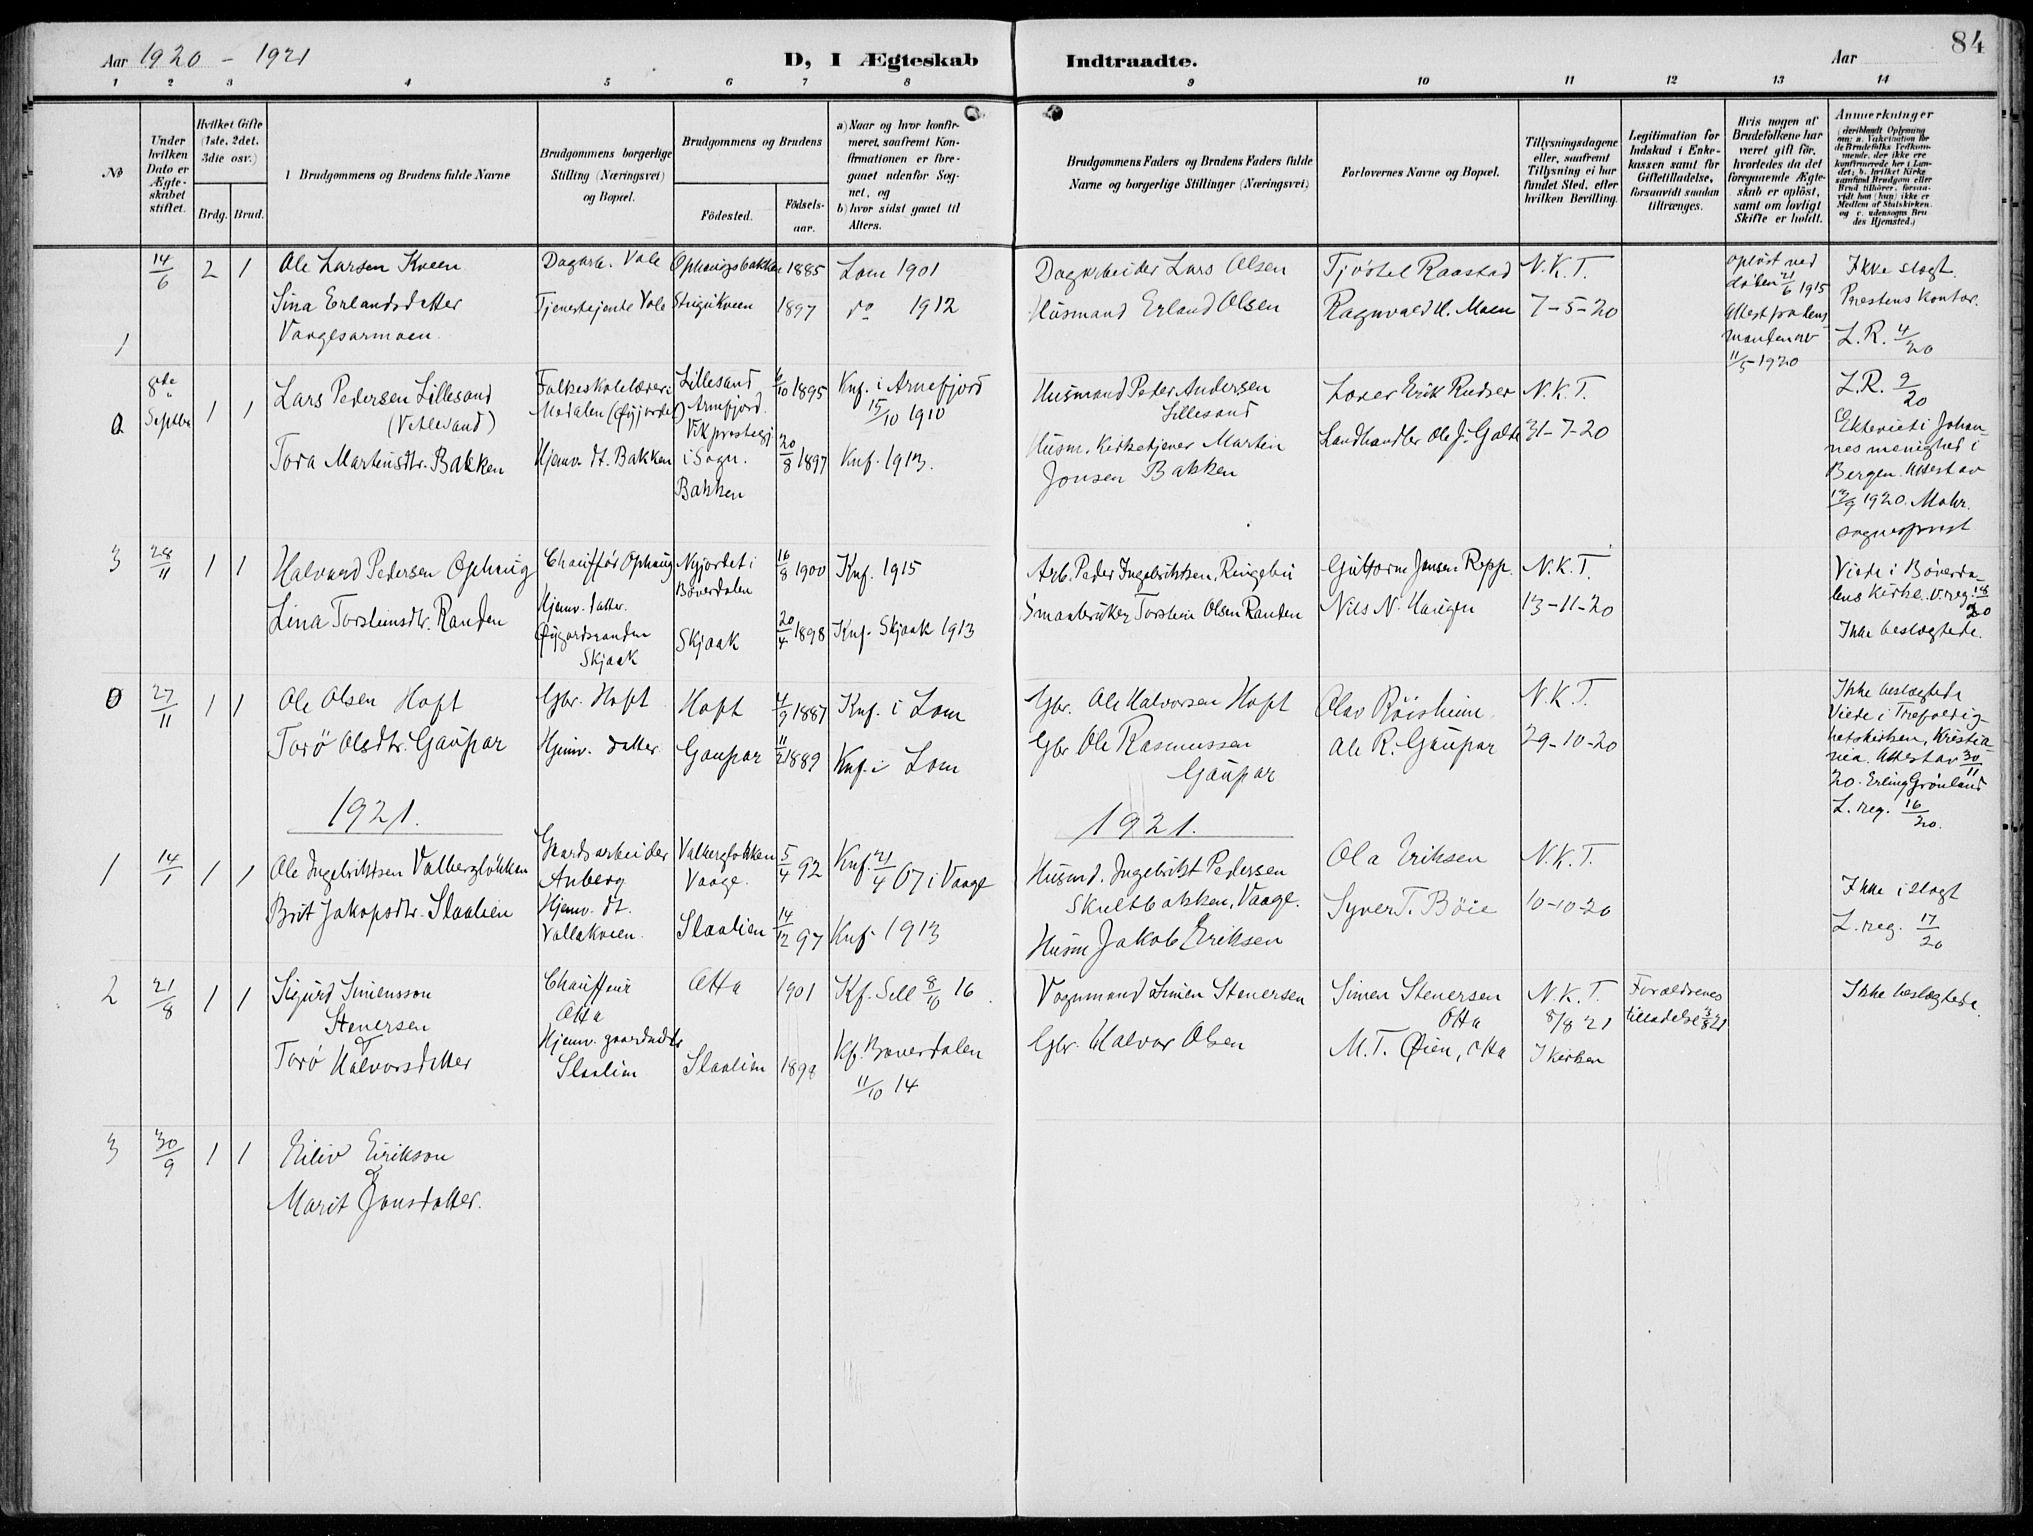 84
Aar 1920 - 1921
D, I Ægteskab Indtraadte.
Aar
1 2 3 4 5 6 7 8 9 10 11 12 13 14
No
Under hvilken Dato er Ægteskabet stiftet.
Hvilket Gifte (1ste, 2det, 3die osv.)
Brdg. Brud.
Brudgommens og Brudens fulde Navne
Brudgommens borgerlige Stilling (Næringsvei) og Bopæl.
Brudgommens og Brudens
Fødested.
Fødselsaar.
a) Naar og hvor konfirmeret, saafremt Konfirmationen er foregaaet udenfor Sognet, og
b) hvor sidst gaaet til Alters.
Brudgommens Faders og Brudens Faders fulde Navne og borgerlige Stillinger (Næringsvei)
Forlovernes Navne og Bopæl.
Tillysningsdagene eller, saafremt Tillysning ei har fundet Sted, efter hvilken Bevilling.
Legitimation for Indskud i Enkekassen samt for Giftetilladelse, forsaavidt saadan tiltrænges.
Hvis nogen af Brudefolkene har været gift før, hvorledes da det foregaaende Ægteskab er opløst, samt om lovligt Skifte er holdt.
Anmerkninger
1 14/6 2 1
Ole Larsen Kveen
Sina Erlandsdatter
Vaagesarmoen.
Dagarb. Vole
Tjenestejente Vole
1885
1897
Lom 1901
do 1912
Dagarbeider Lars Olsen
Husmand Erland Olsen
Tjøstel Raastad
Ragnvald H. Moen
N.K.T.
7-5-20
opløst ved
døden 21/6 1915
Attest fra lens
manden av
11/5-1920
Ikke slegt.
Prestens kontor.
L.R. 4/20
8de Septbr 1 1
Lars Pedersen Lillesand
(Vetlesand)
Tora Martinsdtr. Bakken
Folkeskolelærer i
Hjemv. dt. Bakken
Lillesand
Arnefjord.
Vik prestegj
i Sogn.
Bakken
1895
20/8 1897
Knf. i Arnefjord
15/10 1910
Knf. 1913.
Husmand Peder Andersen
Lillesand
Husm. Kirketjener Martin
Jonsen Bakken
Lærer Erik Rudser
Landhandler Ole J. Galde
N.K.T.
31-7-20
L.R. 9/20
Ekteviet i Johan-
nes menighed i
Bergen. Attest av
1920. Mohr.
sogneprest
3 28/11 1 1
Halvard Pedersen Ophaug
Lina Torsteinsdtr. Randen
Chauffør Ophaug
Hjemv. datter.
Skjaak
Nyjordet i
Bøverdalen
Skjaak
16/8 1900
20/4 1898
Knf. 1915
Knf. Skjaak 1913
Arb. Peder Ingebriktsen, Ringebu
Smaabruker Torstein Olsen Randen
Guttorm Jonsen Repp.
Nils N. Haugen
N.K.T.
13-11-20
Viede i Bøverda-
lens kirke.
Ikke beslegtede.
27/11 1 1
Ole Olsen Hoft
Torø Olsdtr. Gaupar
Gbr. Hoft
Hjemv. datter
Hoft
Gaupar
4/9 1887
11/2 1889
Knf. i Lom
Knf. i Lom
Gbr. Ole Halvorsen Hoft
Gbr Ole Rasmussen
Gaupar
Olav Røisheim
Ole R. Gaupar
N.K.T.
29-10-20
Ikke beslegtede
Viede i Trefoldig-
hetskirken, Kristia-
nia. Attest av 30/11
20. Erling Grønland
L. reg. 16/20.
1921.
1921.
1 14/1 1 1
Ole Ingebriktsen Valbergløkken
Brit Jakopsdtr. Slaalien
Gaardsarbeider
Anberg
Hjemv. dt.
Vollakveen.
Valbergløkken
Vaage.
Slaalien
5/4 92
14/12 97
Knf. 21/4 07 i Vaage
Knf. 1913
Husmd. Ingebrikt Pedersen
Skultbakken, Vaage.
Husm Jakob Eriksen
Ola Eriksen
Syver T. Bøie
N.K.T.
10-10-20
Ikke i slegt
L. reg. 17/20
2 21/8 1 1
Sigurd Simensson
Stenersen
Torø Halvorsdatter
Chauffeur
Otta
Hjemv. gaardmdtr
Slaalien
Otta
Slaalien
1901
1898
Kf. Sell 8/10 16.
Kf. Bøverdalen
11/10 14
Vognmand Simen Stenersen
Gbr. Halvor Olsen
Simen Stenersen
Otta
M.T. Øien, Otta
N.K.T.
8/8 21
I kirken
Forældrenes
tilladelse
Ikke beslegtede.
3 30/9 1 1
Eiliv Eirikson
&
Marit Jonsdatter.